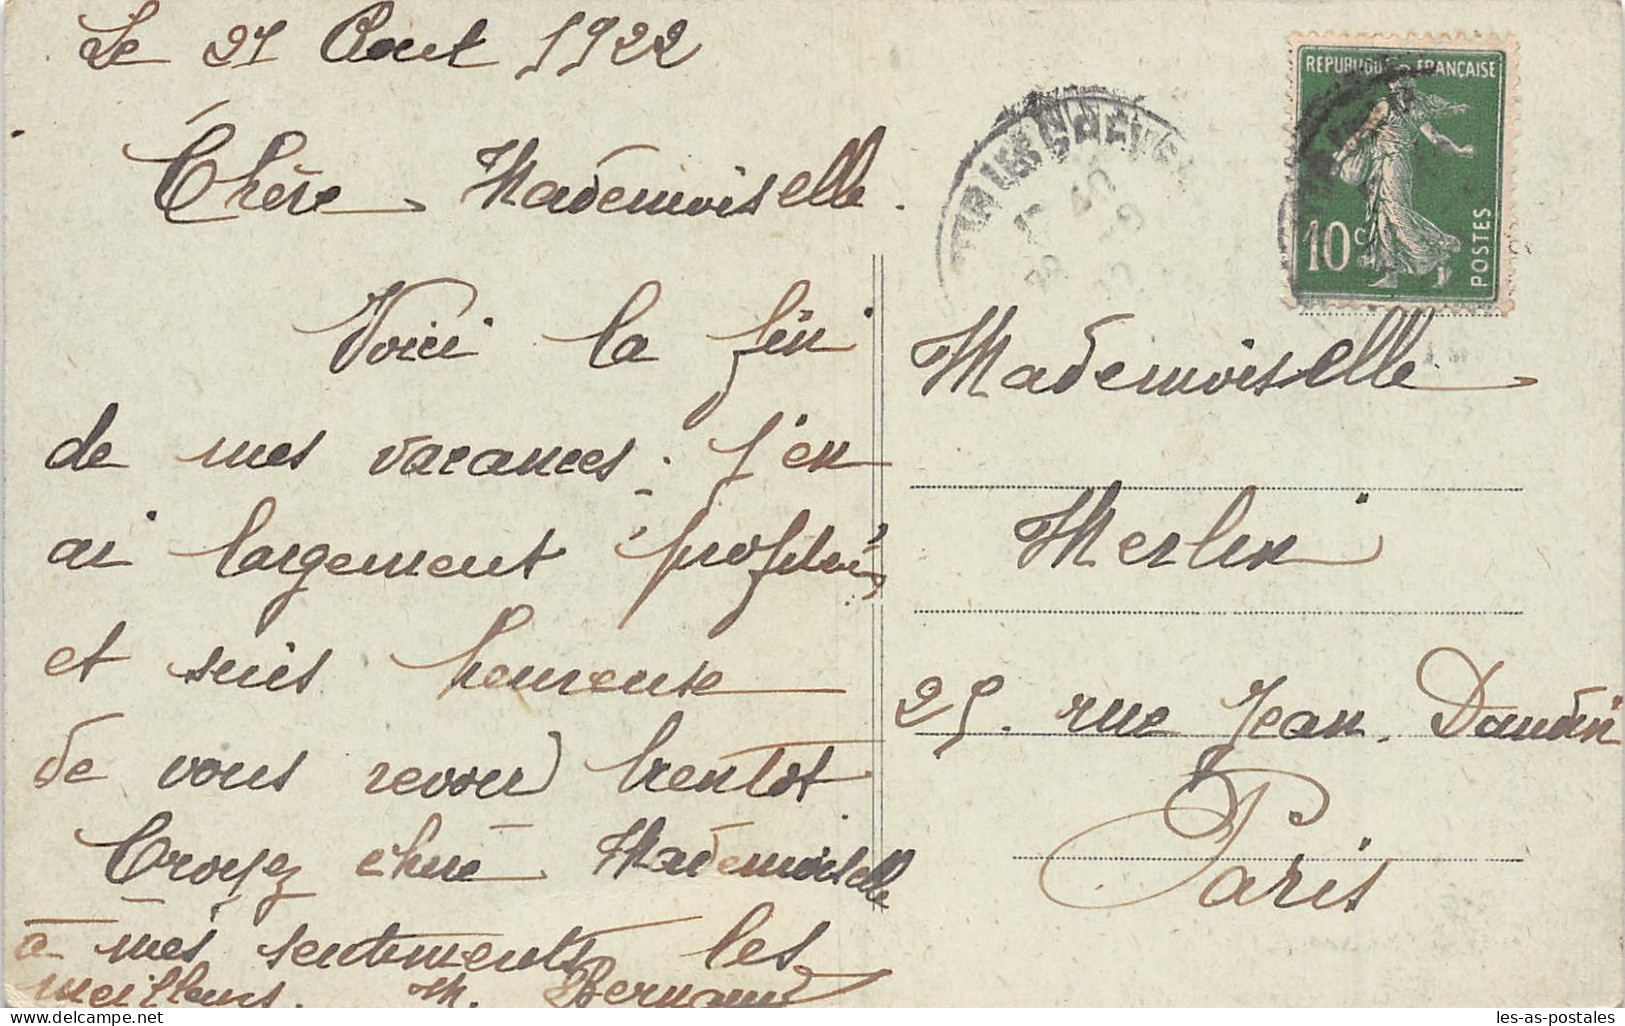 Le 27 Aout 1922
Chère Mademoiselle.
Voici la fin
de mes vacances. J'en
ai largement profité,
et suis heureuse
de vous revoir bientot
Croyez chère Mademoiselle
à mes sentiments les
meilleurs. M. Bernard
REPUBLIQUE FRANÇAISE
10c
POSTES
Mademoiselle
Merlin
25. rue Jean. Daudin
Paris
les-as-postales.com